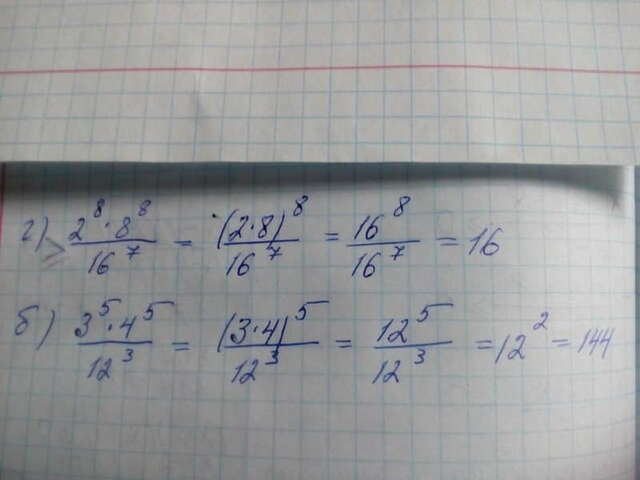 г) 2⁸·8⁸/16⁷ = (2·8)⁸/16⁷ = 16⁸/16⁷ = 16
б) 3⁵·4⁵/12³ = (3·4)⁵/12³ = 12⁵/12³ = 12² = 144